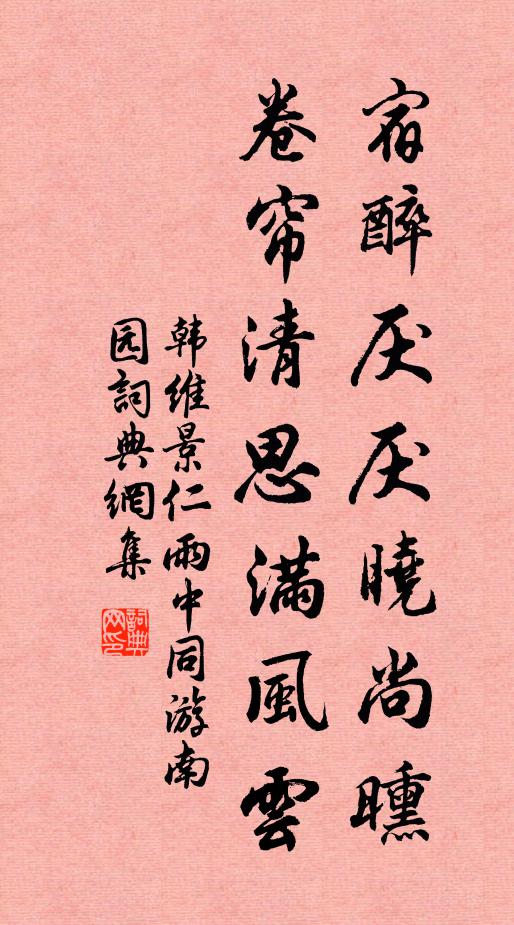 宿醉厌厌曉尚曛
卷帘清思滿風雲
韩維景仁雨中同游南
园詞典網集
詞典网印